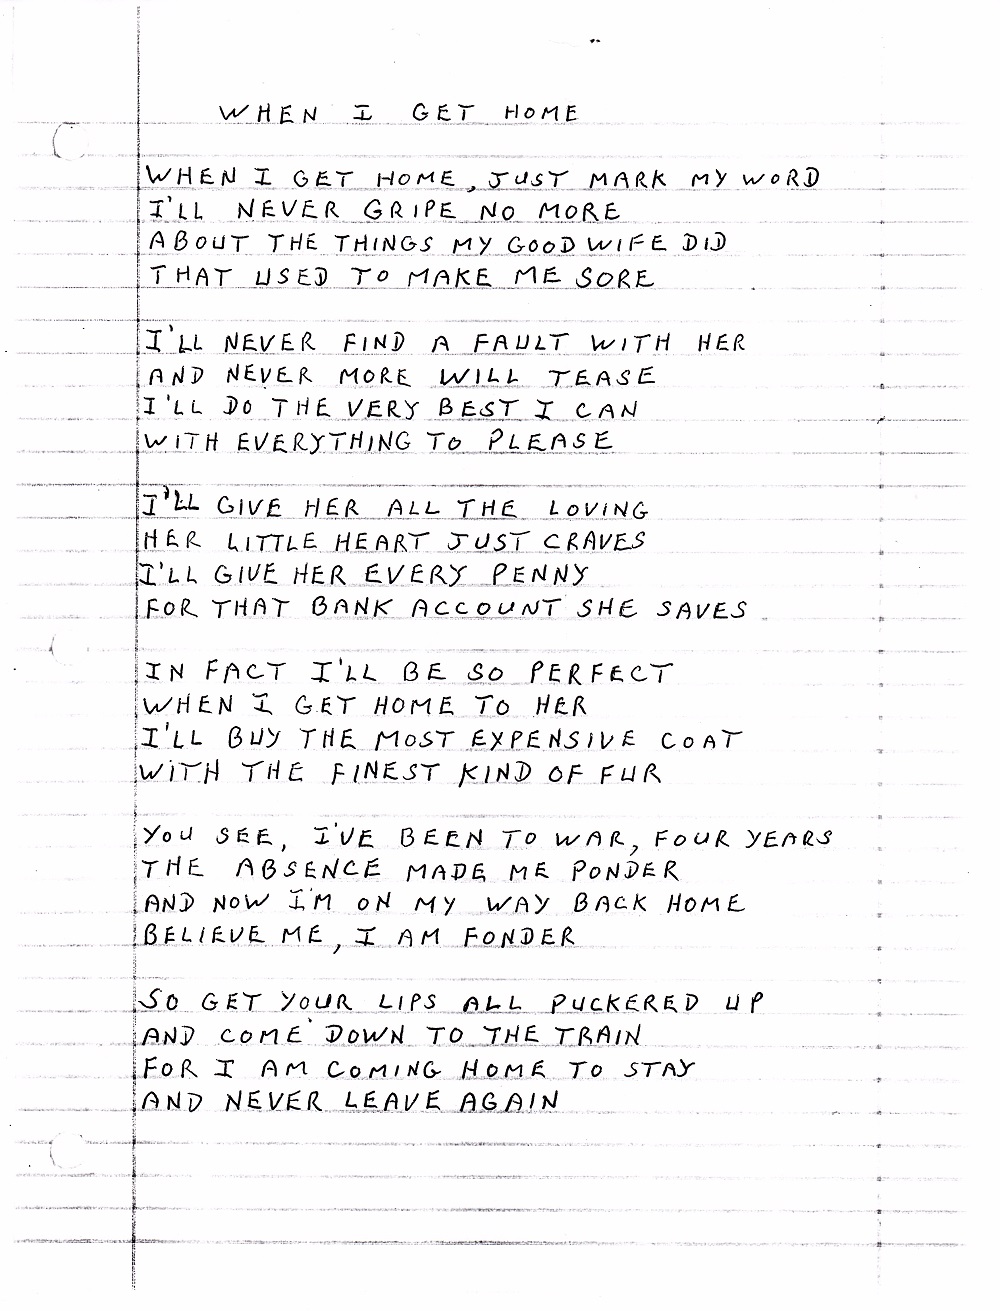 WHEN I GET HOME
WHEN I GET HOME, JUST MARK MY WORD
I'LL NEVER GRIPE NO MORE
ABOUT THE THINGS MY GOOD WIFE DID
THAT USED TO MAKE ME SORE
I'LL NEVER FIND A FAULT WITH HER
AND NEVER MORE WILL TEASE
I'LL DO THE VERY BEST I CAN
WITH EVERYTHING TO PLEASE
I'LL GIVE HER ALL THE LOVING
HER LITTLE HEART JUST CRAVES
I'LL GIVE HER EVERY PENNY
FOR THAT BANK ACCOUNT SHE SAVES
IN FACT I'LL BE SO PERFECT
WHEN I GET HOME TO HER
I'LL BUY THE MOST EXPENSIVE COAT
WITH THE FINEST KIND OF FUR
YOU SEE, I'VE BEEN TO WAR, FOUR YEARS
THE ABSENCE MADE ME PONDER
AND NOW I'M ON MY WAY BACK HOME
BELIEVE ME, I AM FONDER
SO GET YOUR LIPS ALL PUCKERED UP
AND COME DOWN TO THE TRAIN
FOR I AM COMING HOME TO STAY
AND NEVER LEAVE AGAIN